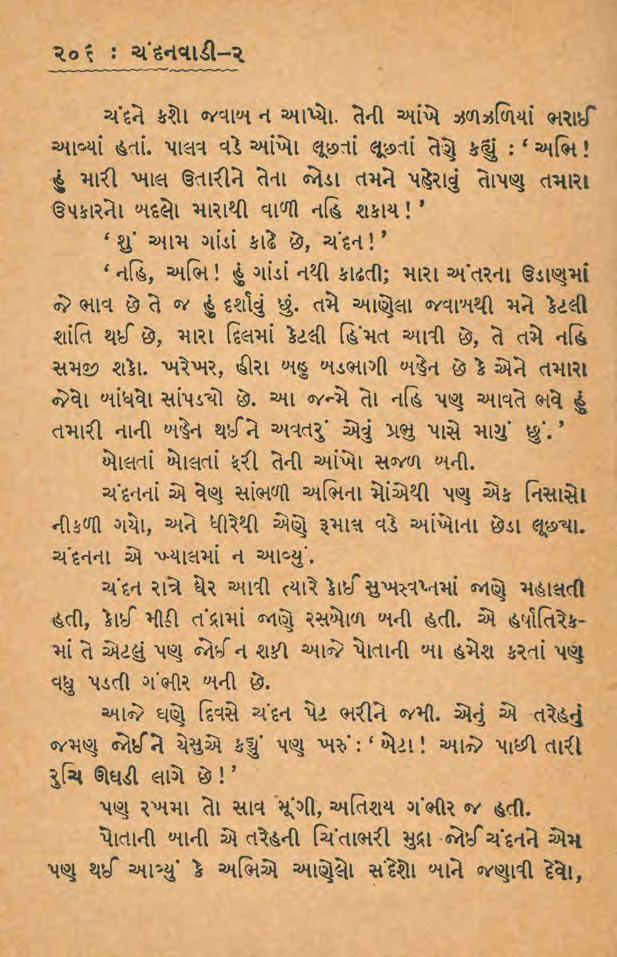 ૨૦૬ : ચંદનવાડી–૨
ચંદને કશો જવાબ ન આપ્યો. તેની આંખે ઝળઝળિયાં ભરાઈ
આવ્યાં હતાં. પાલવ વડે આંખો લૂછતાં લૂછતાં તેણે કહ્યું : ‘અભિ !
હું મારી ખાલ ઉતારીને તેના જોડા તમને પહેરાવું તોપણ તમારા
ઉપકારનો બદલો મારાથી વાળી નહિ શકાય !’
‘શું આમ ગાંડાં કાઢે છે, ચંદન !’
‘નહિ, અભિ ! હું ગાંડાં નથી કાઢતી; મારા અંતરના ઉડાણમાં
જે ભાવ છે તે જ હું દર્શાવું છું. તમે આણેલા જવાબથી મને કેટલી
શાંતિ થઈ છે, મારા દિલમાં કેટલી હિંમત આવી છે, તે તમે નહિ
સમજી શકો. ખરેખર, હીરા બહુ બડભાગી બહેન છે કે એને તમારા
જેવો બાંધવો સાંપડ્યો છે. આ જન્મે તો નહિ પણ આવતે ભવે હું
તમારી નાની બહેન થઈને અવતરું એવું પ્રભુ પાસે માગું છું.’
બોલતાં બોલતાં ફરી તેની આંખો સજળ બની.
ચંદનનાં એ વેણ સાંભળી અભિના મોંએથી પણ એક નિસાસો
નીકળી ગયો, અને ધીરેથી એણે રૂમાલ વડે આંખોના છેડા લૂછ્યા.
ચંદનના એ ખ્યાલમાં ન આવ્યું.
ચંદન રાત્રે ઘેર આવી ત્યારે કોઈ સુખસ્વપ્નમાં જાણે મહાલતી
હતી, કોઈ મીઠી તંદ્રામાં જાણે રસબોળ બની હતી. એ હર્ષાતિરેક-
માં તે એટલું પણ જોઈ ન શકી આજે પોતાની બા હમેશ કરતાં પણ
વધુ પડતી ગંભીર બની છે.
આજે ઘણે દિવસે ચંદન પેટ ભરીને જમી. એનું એ તરેહનું
જમણ જોઈને યેસુએ કહ્યું પણ ખરું : ‘બેટા ! આજે પાછી તારી
રુચિ ઊઘડી લાગે છે !’
પણ રખમા તો સાવ મૂંગી, અતિશય ગંભીર જ હતી.
પોતાની બાની એ તરેહની ચિંતાભરી મુદ્રા જોઈ ચંદનને એમ
પણ થઈ આવ્યું કે અભિએ આણેલો સંદેશો બાને જણાવી દેવો,